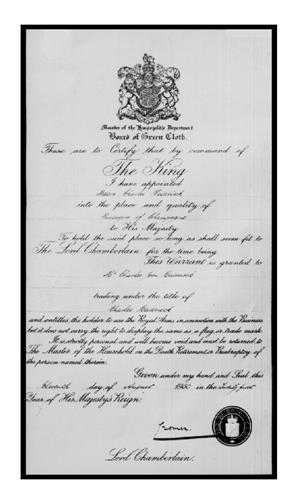 Master of the Household's Department
Board of Green Cloth.
These are to Certify that by command of
The King
I have appointed
into the place and quality of
to His Majesty
To hold the said place so long as shall seem fit to
The Lord Chamberlain for the time being
This Warrant is granted to
trading under the title of
and entitles the holder to use the Royal Arms in connection with the Business
but it does not carry the right to display the same as a flag or trade mark.
It is strictly personal and will become void and must be returned to
The Master of the Household on the Death Retirement or Bankruptcy of
the person named therein.
Given under my hand and Seal this
day of August 1930 in the
Year of His Majesty's Reign.
Cromer.
Lord Chamberlain.